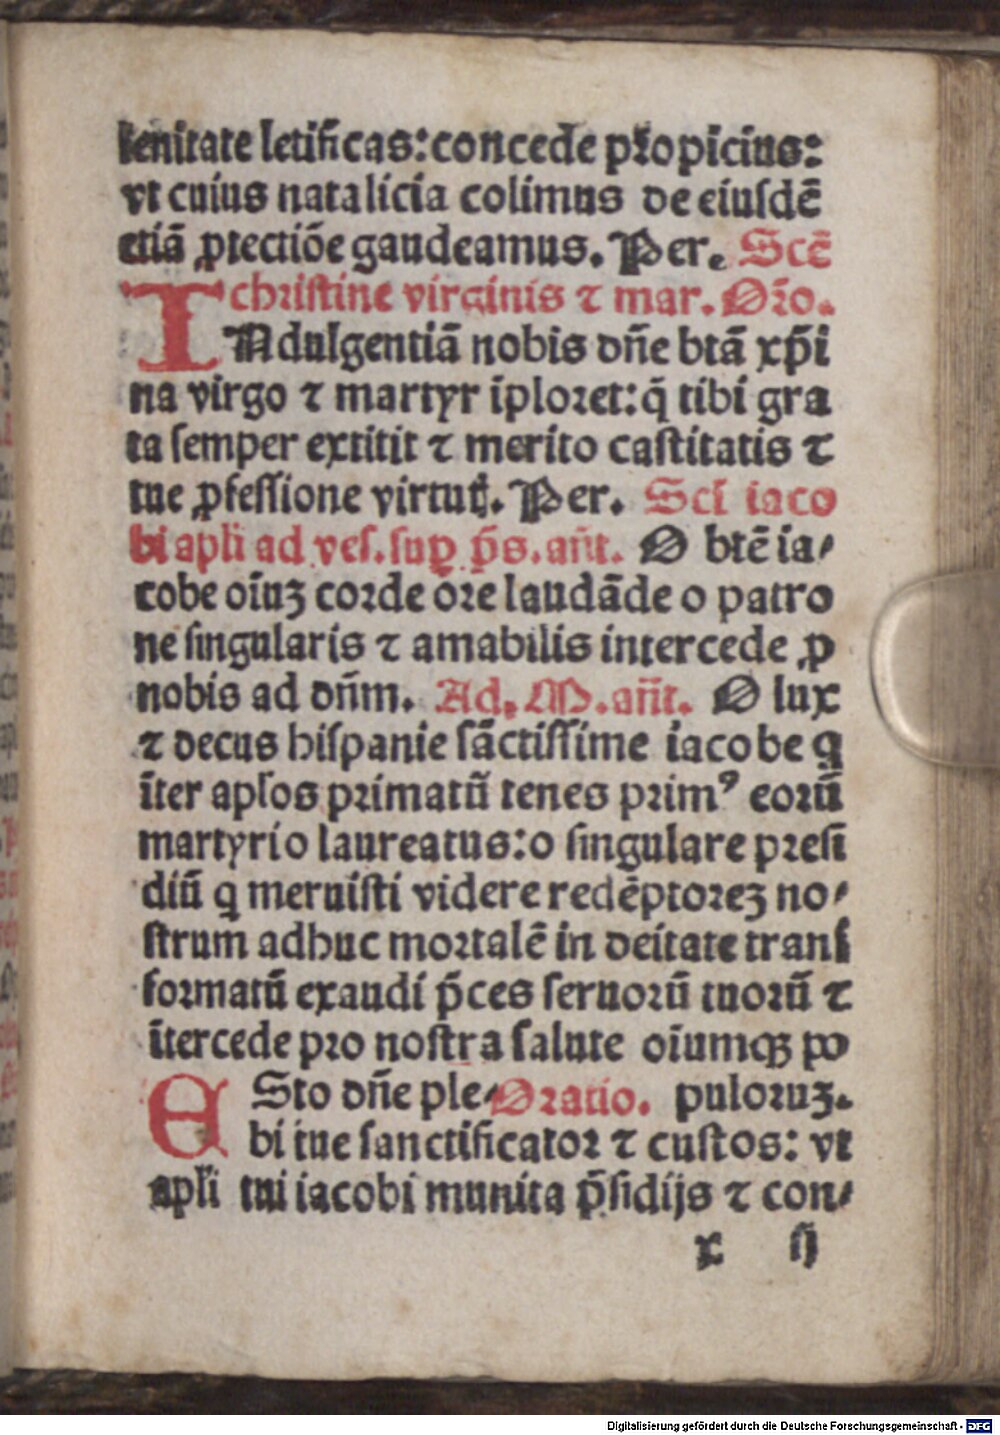 lenitate letificas: concede propicius:
vt cuius natalicia colimus de eiusdē
etiā ꝓtectiōe gaudeamus. Per. Scē
christine virginis ⁊ mar. Oꝛ̄o.
INdulgentiā nobis dn̄e btā xp̄i
na virgo ⁊ martyr īploꝛet: q̄ tibi gra
ta semper extitit ⁊ merito castitatis ⁊
tue ꝓfessione virtut̄. Per. Sci iaco
bi apli ad ves. suꝑ p̄s. an̄t. O btē ia⸗
cobe oīuꝫ coꝛde oꝛe laudāde o patro
ne singularis ⁊ amabilis intercede ꝓ
nobis ad dn̄m. Ad. M. an̄t. O lux
⁊ decus hispanie sāctissime iacobe q
īter apl'os pꝛimatū tenes pꝛimꝰ eoꝛū
martyrio laureatus: o singulare pꝛesi
diū q meruisti videre redēptoꝛeꝫ no⸗
strum adhuc moꝛtalē in deitate trans
foꝛmatū exaudi p̄ces seruoꝛū tuoꝛū ⁊
ītercede pꝛo nostra salute oīumqꝫ po
ESto dn̄e ple⸗ Oꝛatio. puloꝛuꝫ.
bi tue sanctificatoꝛ ⁊ custos: vt
apl'i tui iacobi munita p̄sidijs ⁊ con⸗
x ij
Digitalisierung gefördert durch die Deutsche Forschungsgemeinschaft - DFG